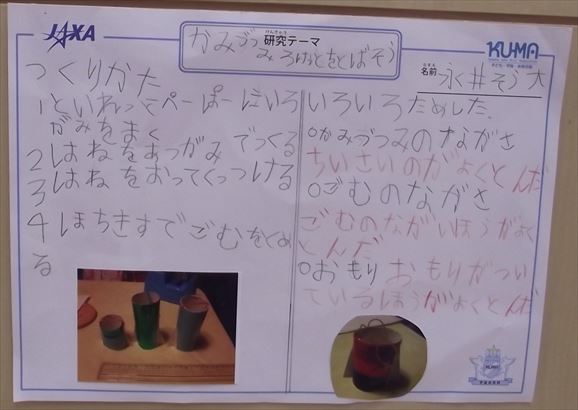 JAXA
かみづつ
けんきゅう
研究テーマ
みろけっとをとばそう
KUMA
なまえ
名前 永井そう大
つくりかた
1といれっとぺーぱーにいろ
がみをまく
2はねをあつがみでつくる
3はねをおってくっつける
4ほちきすでごむをとめ
る
いろいろためした、
○かみづつみのながさ
ちいさいのがよくとんだ
○ごむのながさ
ごむのながいほうがよく
とんだ
○おもりおもりがつい
ているほうがよくとんだ